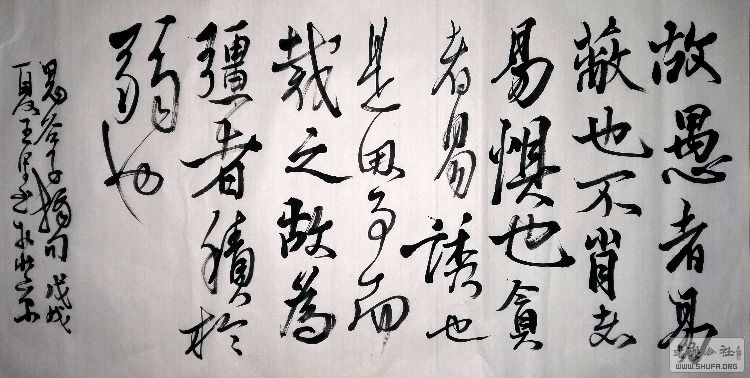 故愚者易
蔽也不肖者
易懼也貪
者易誘也
是因事而
裁之故為
彊者積於
弱也
鬼谷子摘句戊戌
夏王
书法公社
WWW.SHUFA.ORG